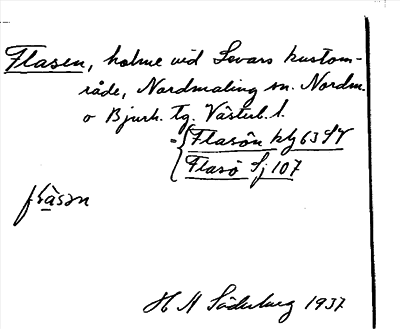 Flasen, holme vid Levars kustom-
råde, Nordmaling sn. Nordm.
o Bjurh. tg. Västerb. l.
= { Flasön kbl 63 SV
Flasö Sj 107
flåsən
H N Söderberg 1937